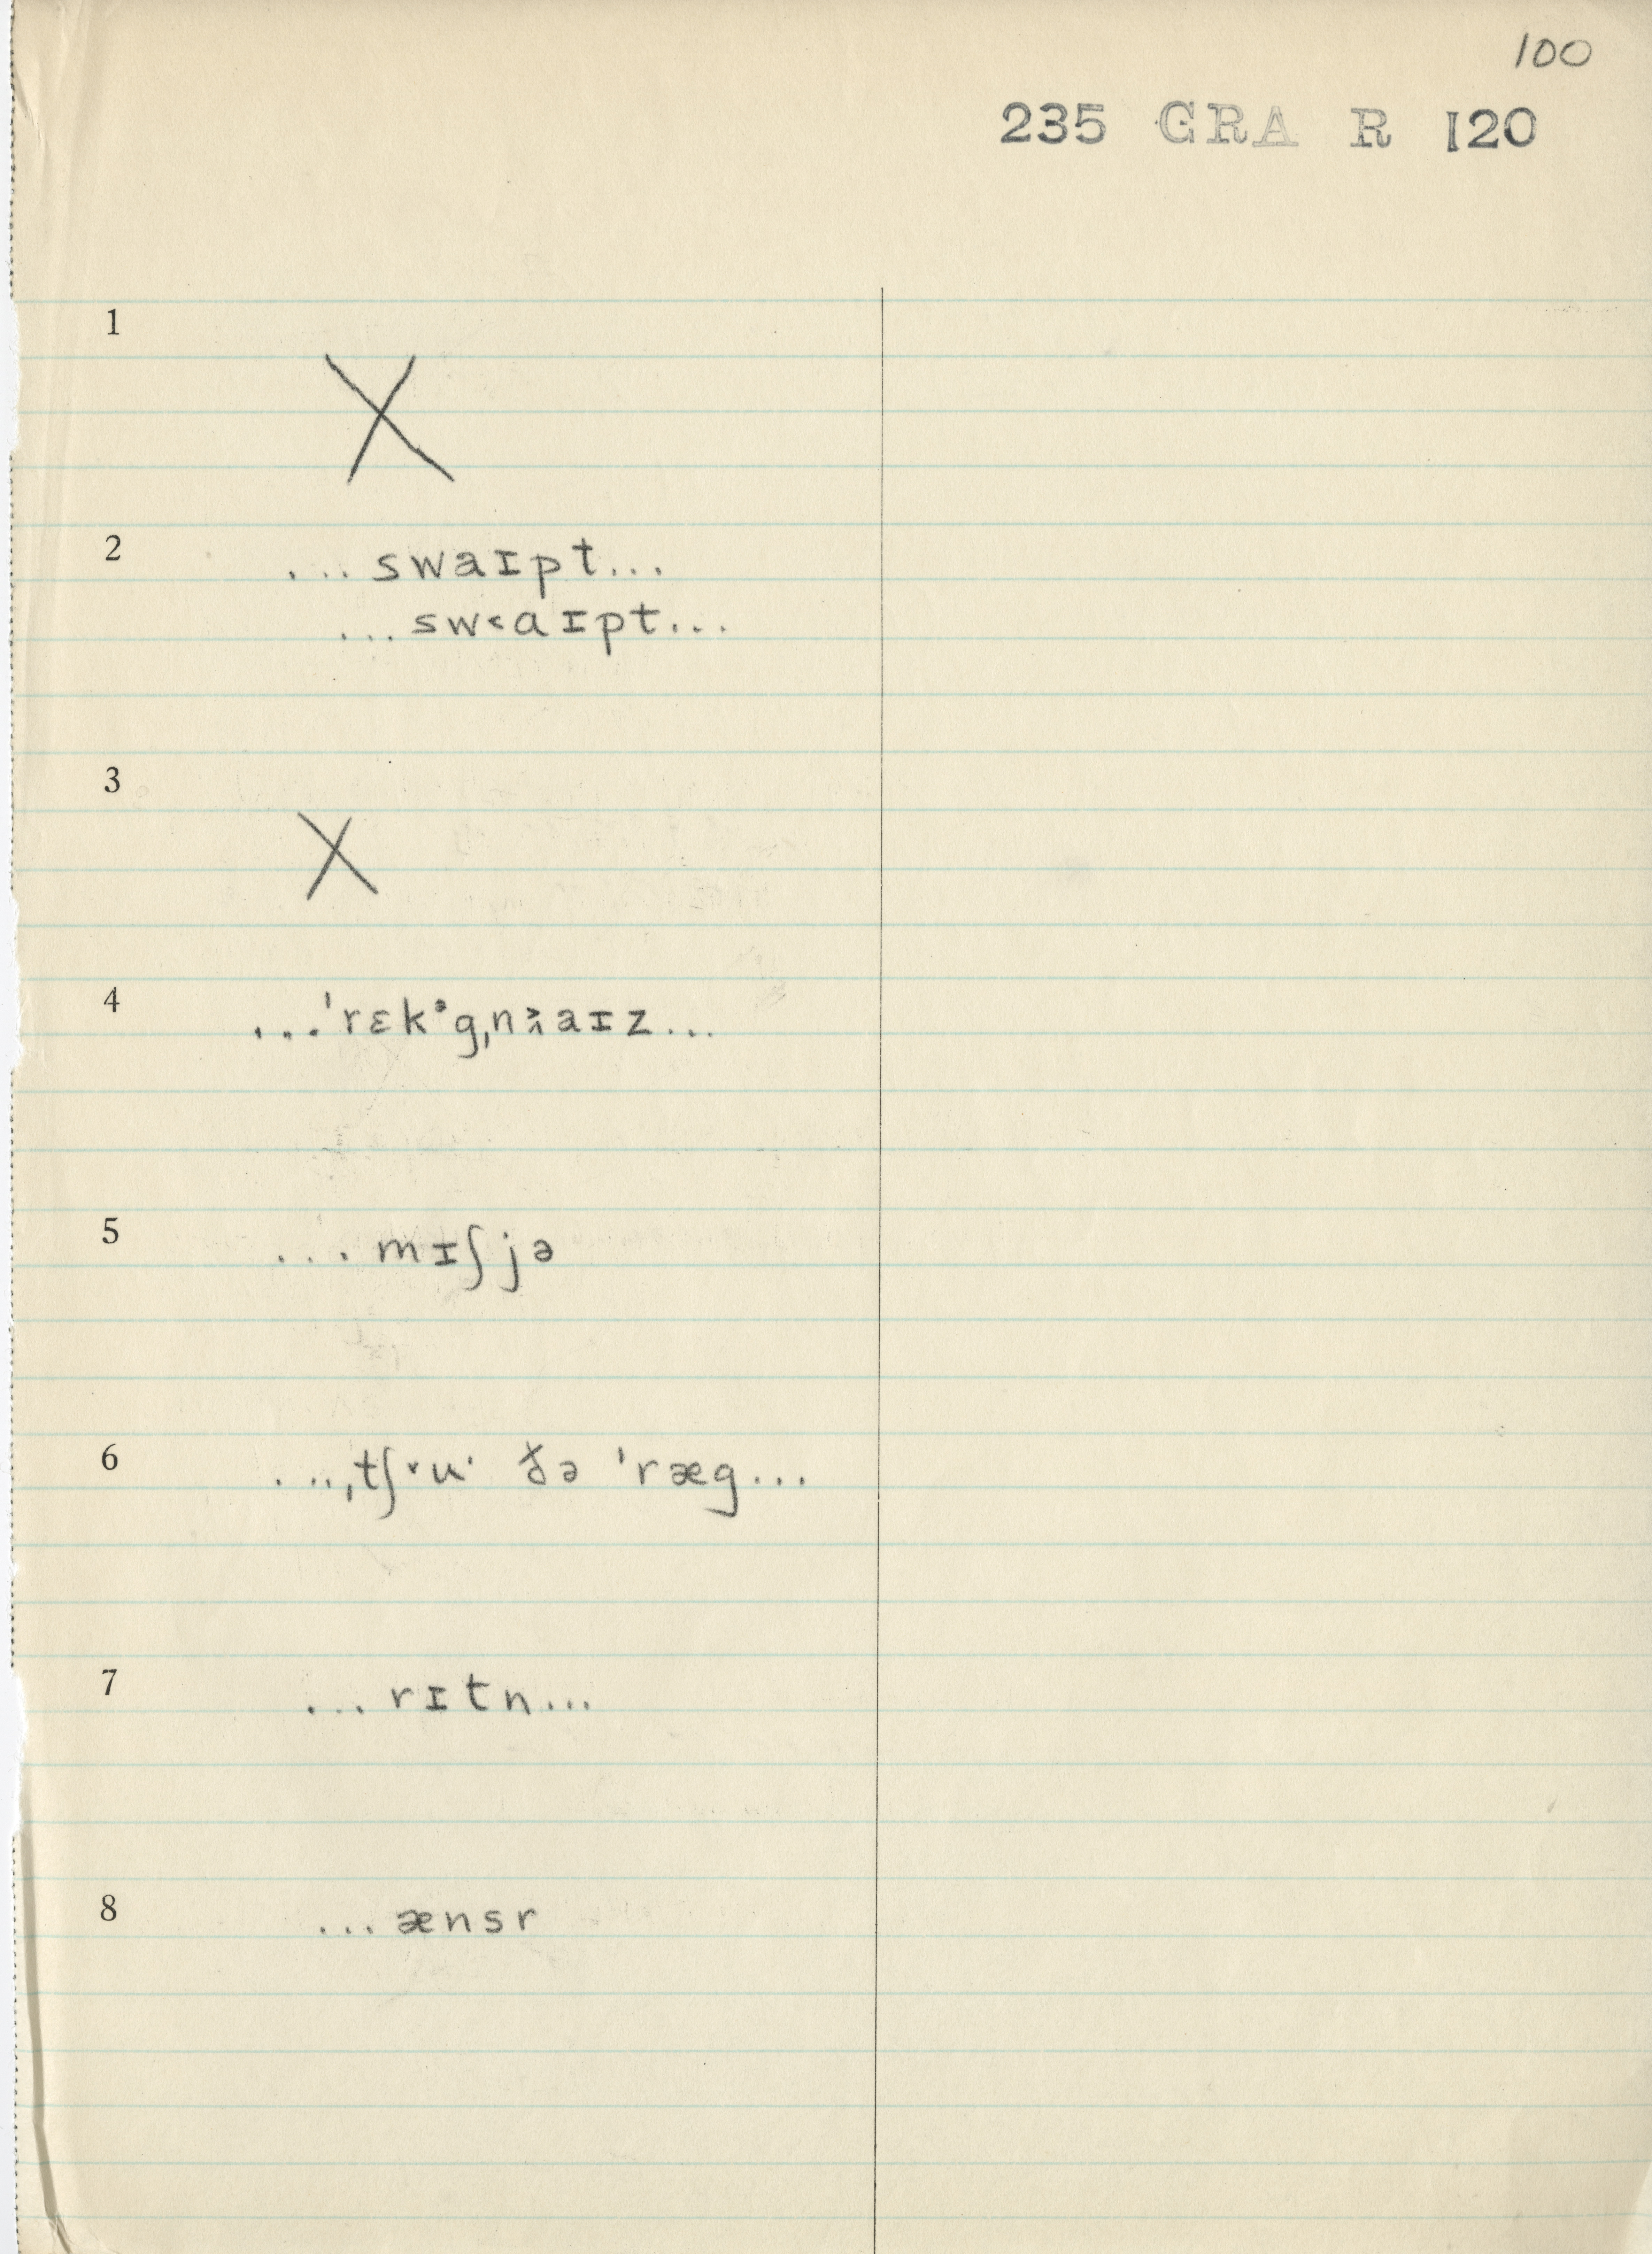 100
235 GRA R 120
1
X
2 ...swaɪpt...
...sw˂aɪpt...
3
X
4 ...ˈrɛkᵊgˌn aɪz...
5 ...mɪʃjə
6 ...ˌtʃ˅u· ðə ˈræg...
7 ...rɪtn...
8 ...ænsr